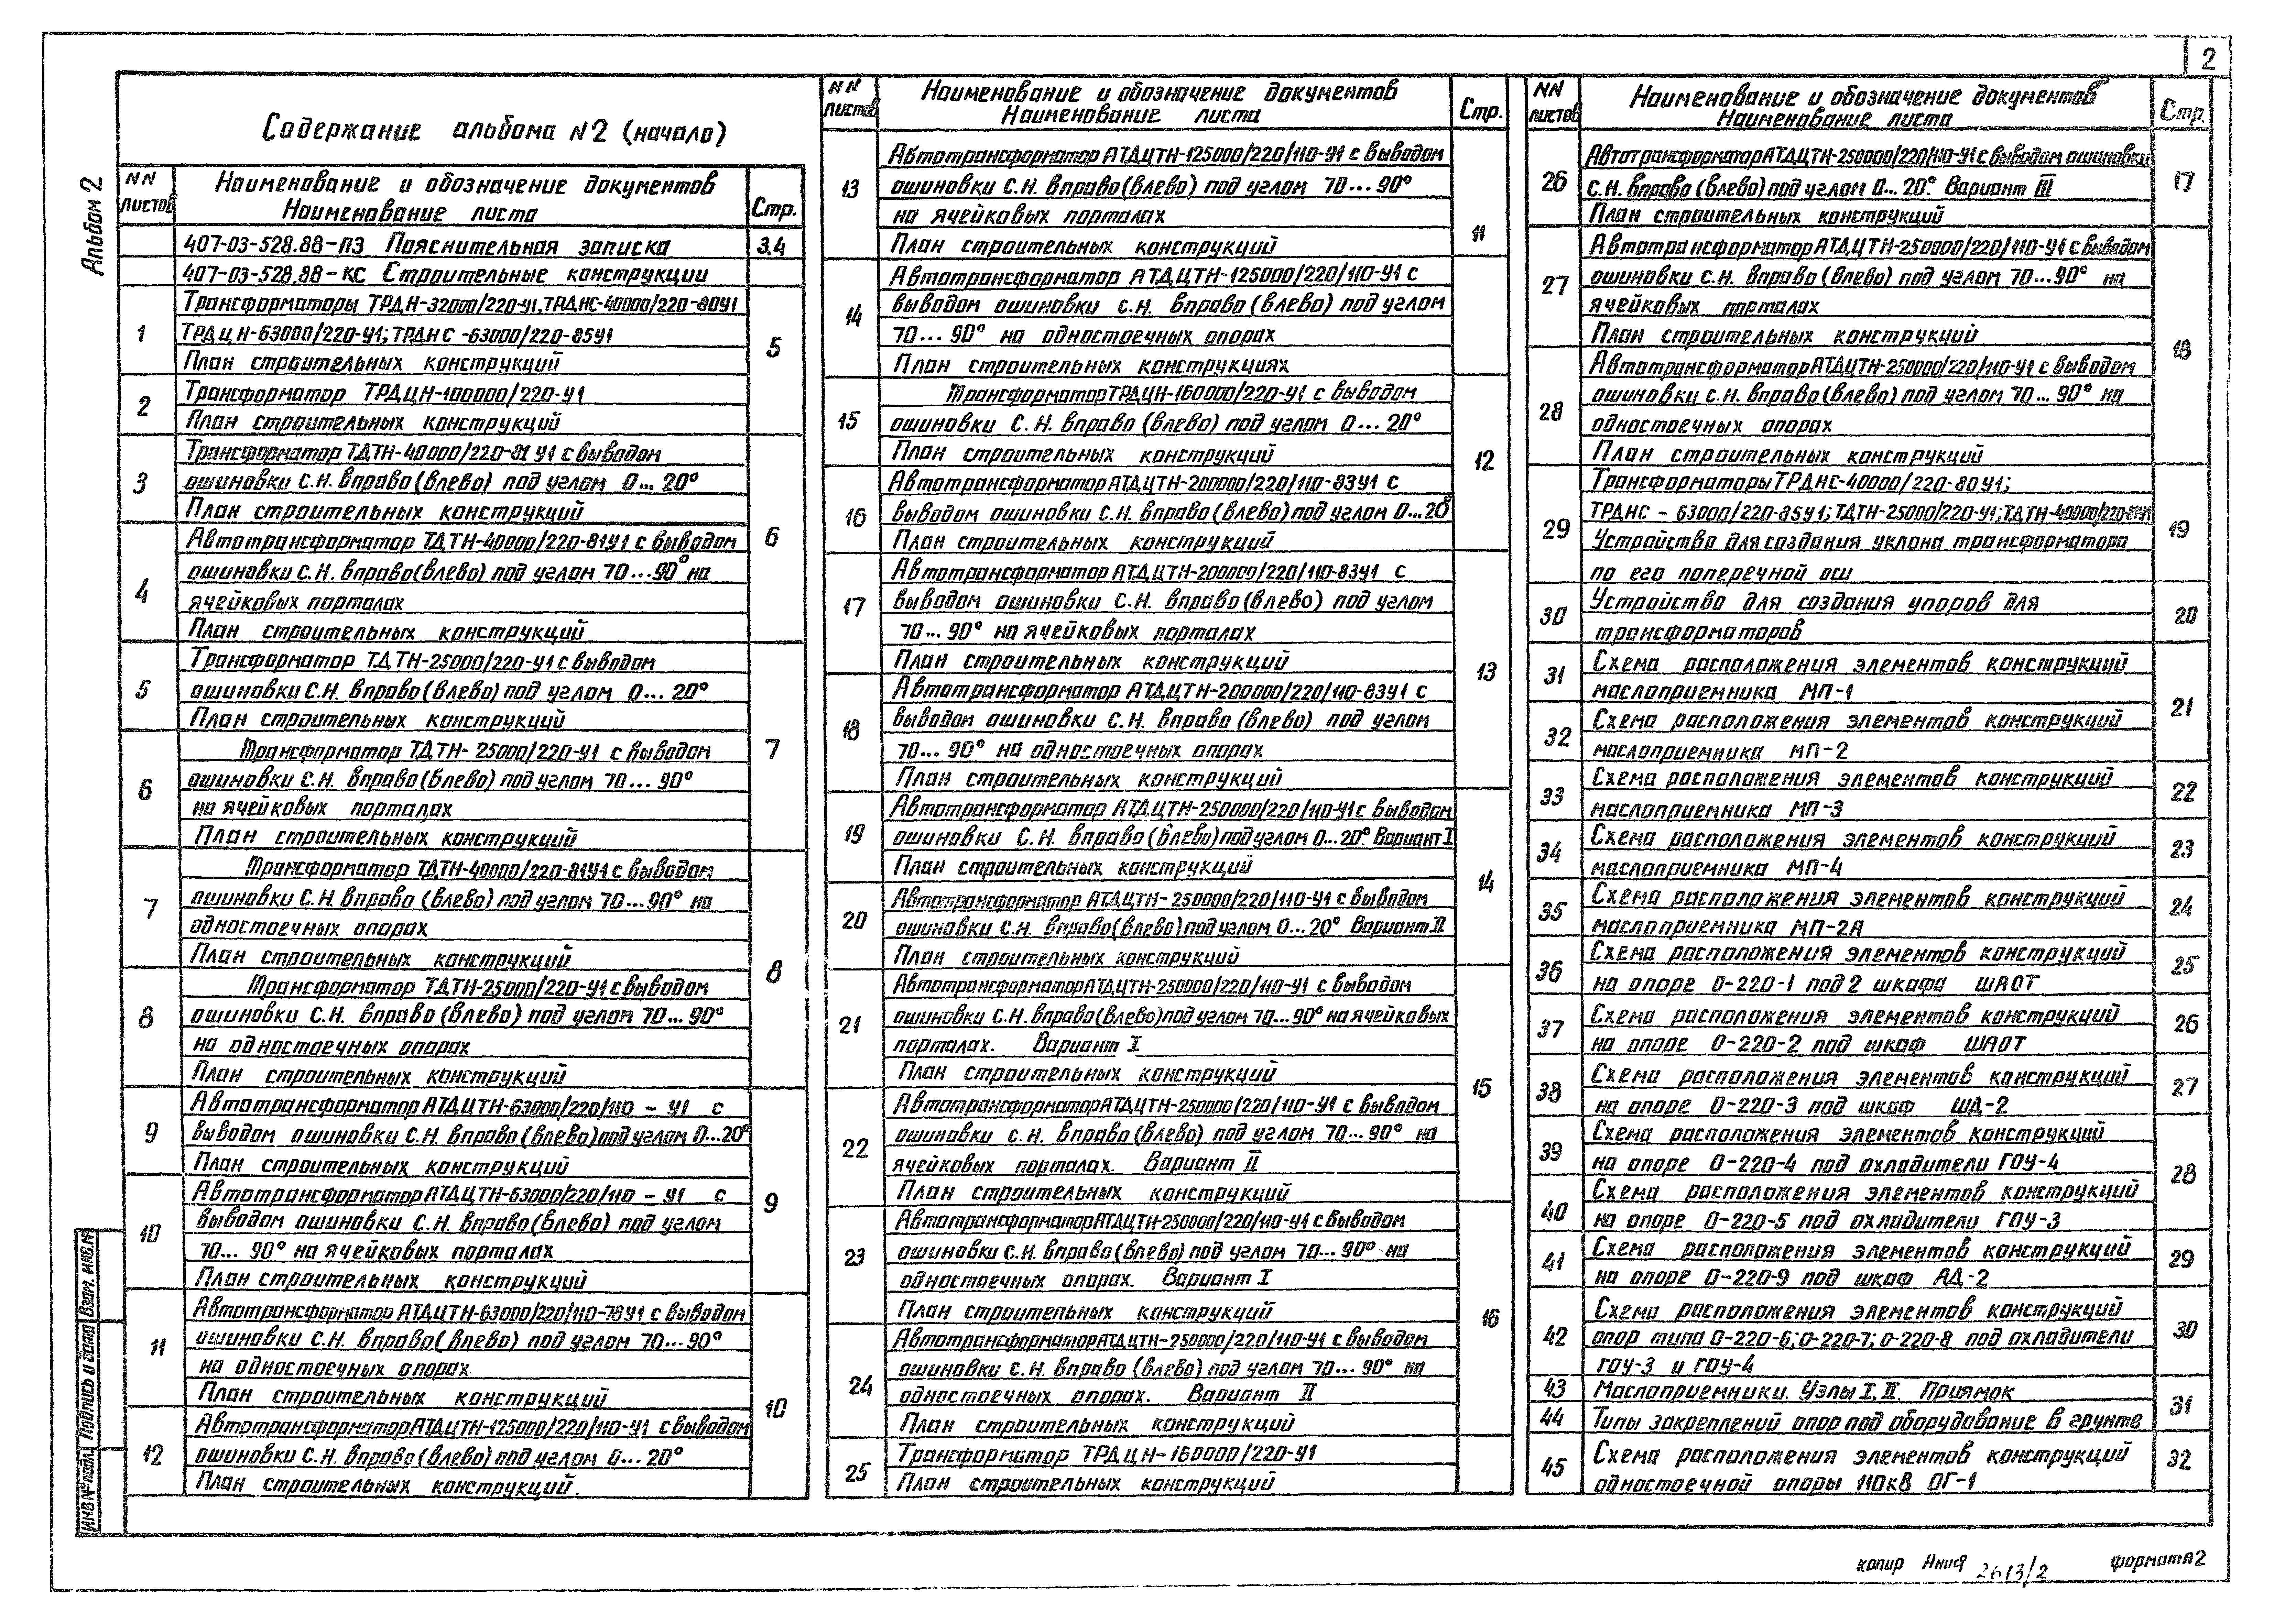 2
Альбом 2
Содержание альбома N2 (начало)
NN листов
Наименование и обозначение документов
Наименование листа
Стр.
407-03-528.88-ПЗ Пояснительная записка
3.4
407-03-528.88-КС Строительные конструкции
1
Трансформаторы ТРДН-32000/220-У1, ТРДНС-40000/220-80У1
ТРДЦН-63000/220-У1; ТРДНС-63000/220-85У1
План строительных конструкций
5
2
Трансформатор ТРДЦН-100000/220-У1
План строительных конструкций
3
Трансформатор ТДТН-40000/220-81У1 с выводом
ошиновки С.Н. вправо (влево) под углом 0...20°
План строительных конструкций
6
4
Автотрансформатор ТДТН-40000/220-81У1 с выводом
ошиновки С.Н. вправо (влево) под углом 70...90° на
ячейковых порталах
План строительных конструкций
5
Трансформатор ТДТН-25000/220-У1 с выводом
ошиновки С.Н. вправо (влево) под углом 0...20°
План строительных конструкций
7
6
Трансформатор ТДТН-25000/220-У1 с выводом
ошиновки С.Н. вправо (влево) под углом 70...90°
на ячейковых порталах
План строительных конструкций
7
Трансформатор ТДТН-40000/220-81У1 с выводом
ошиновки С.Н. вправо (влево) под углом 70...90° на
одностоечных опорах
План строительных конструкций
8
8
Трансформатор ТДТН-25000/220-У1 с выводом
ошиновки С.Н. вправо (влево) под углом 70...90°
на одностоечных опорах
План строительных конструкций
9
Автотрансформатор АТДЦТН-63000/220/110-У1 с
выводом ошиновки С.Н. вправо (влево) под углом 0...20°
План строительных конструкций
9
10
Автотрансформатор АТДЦТН-63000/220/110-У1 с
выводом ошиновки С.Н. вправо (влево) под углом
70...90° на ячейковых порталах
План строительных конструкций
11
Автотрансформатор АТДЦТН-63000/220/110-78У1 с выводом
ошиновки С.Н. вправо (влево) под углом 70...90°
на одностоечных опорах
План строительных конструкций
10
12
Автотрансформатор АТДЦТН-125000/220/110-У1 с выводом
ошиновки С.Н. вправо (влево) под углом 0...20°
План строительных конструкций.
NN листов
Наименование и обозначение документов
Наименование листа
Стр.
13
Автотрансформатор АТДЦТН-125000/220/110-У1 с выводом
ошиновки С.Н. вправо (влево) под углом 70...90°
на ячейковых порталах
План строительных конструкций
11
14
Автотрансформатор АТДЦТН-125000/220/110-У1 с
выводом ошиновки С.Н. вправо (влево) под углом
70...90° на одностоечных опорах
План строительных конструкциях
15
Трансформатор ТРДЦН-160000/220-У1 с выводом
ошиновки С.Н. вправо (влево) под углом 0...20°
План строительных конструкций
12
16
Автотрансформатор АТДЦТН-200000/220/110-83У1 с
выводом ошиновки С.Н. вправо (влево) под углом 0...20°
План строительных конструкций
17
Автотрансформатор АТДЦТН-200000/220/110-83У1 с
выводом ошиновки С.Н. вправо (влево) под углом
70...90° на ячейковых порталах
План строительных конструкций
13
18
Автотрансформатор АТДЦТН-200000/220/110-83У1 с
выводом ошиновки С.Н. вправо (влево) под углом
70...90° на одностоечных опорах
План строительных конструкций
19
Автотрансформатор АТДЦТН-250000/220/110-У1 с выводом
ошиновки С.Н. вправо (влево) под углом 0...20°. Вариант I
План строительных конструкций
14
20
Автотрансформатор АТДЦТН-250000/220/110-У1 с выводом
ошиновки С.Н. вправо (влево) под углом 0...20° Вариант II
План строительных конструкций
21
Автотрансформатор АТДЦТН-250000/220/110-У1 с выводом
ошиновки С.Н. вправо (влево) под углом 70...90° на ячейковых
порталах. Вариант I
План строительных конструкций
15
22
Автотрансформатор АТДЦТН-250000/220/110-У1 с выводом
ошиновки С.Н. вправо (влево) под углом 70...90° на
ячейковых порталах. Вариант II
План строительных конструкций
23
Автотрансформатор АТДЦТН-250000/220/110-У1 с выводом
ошиновки С.Н. вправо (влево) под углом 70...90° на
одностоечных опорах. Вариант I
План строительных конструкций
16
24
Автотрансформатор АТДЦТН-250000/220/110-У1 с выводом
ошиновки С.Н. вправо (влево) под углом 70...90° на
одностоечных опорах. Вариант II
План строительных конструкций
25
Трансформатор ТРДЦН-160000/220-У1
План строительных конструкций
NN листов
Наименование и обозначение документов
Наименование листа
Стр.
26
Автотрансформатор АТДЦТН-250000/220/110-У1 с выводом ошиновки
С.Н. вправо (влево) под углом 0...20°. Вариант III
План строительных конструкций
17
27
Автотрансформатор АТДЦТН-250000/220/110-У1 с выводом
ошиновки С.Н. вправо (влево) под углом 70...90° на
ячейковых порталах
План строительных конструкций
18
28
Автотрансформатор АТДЦТН-250000/220/110-У1 с выводом
ошиновки С.Н. вправо (влево) под углом 70...90° на
одностоечных опорах
План строительных конструкций
29
Трансформаторы ТРДНС-40000/220-80У1;
ТРДНС-63000/220-85У1; ТДТН-25000/220-У1; ТДТН-40000/220-81У1
Устройство для создания уклона трансформатора
по его поперечной оси
19
30
Устройство для создания упоров для
трансформаторов
20
31
Схема расположения элементов конструкций
маслоприемника МП-1
21
32
Схема расположения элементов конструкций
маслоприемника МП-2
33
Схема расположения элементов конструкций
маслоприемника МП-3
22
34
Схема расположения элементов конструкций
маслоприемника МП-4
23
35
Схема расположения элементов конструкций
маслоприемника МП-2А
24
36
Схема расположения элементов конструкций
на опоре О-220-1 под 2 шкафа ШАОТ
25
37
Схема расположения элементов конструкций
на опоре О-220-2 под шкаф ШАОТ
26
38
Схема расположения элементов конструкций
на опоре О-220-3 под шкаф ШД-2
27
39
Схема расположения элементов конструкций
на опоре О-220-4 под охладители ГОУ-4
28
40
Схема расположения элементов конструкций
на опоре О-220-5 под охладители ГОУ-3
41
Схема расположения элементов конструкций
на опоре О-220-9 под шкаф АД-2
29
42
Схема расположения элементов конструкций
опор типа О-220-6; О-220-7; О-220-8 под охладители
ГОУ-3 и ГОУ-4
30
43
Маслоприемники. Узлы I, II. Приямок
31
44
Типы закреплений опор под оборудование в грунте
45
Схема расположения элементов конструкций
одностоечной опоры 110кВ ОГ-1
32
Взам. инв.№
Подпись и дата
Инв № подл
копир
2613/2
формат А2